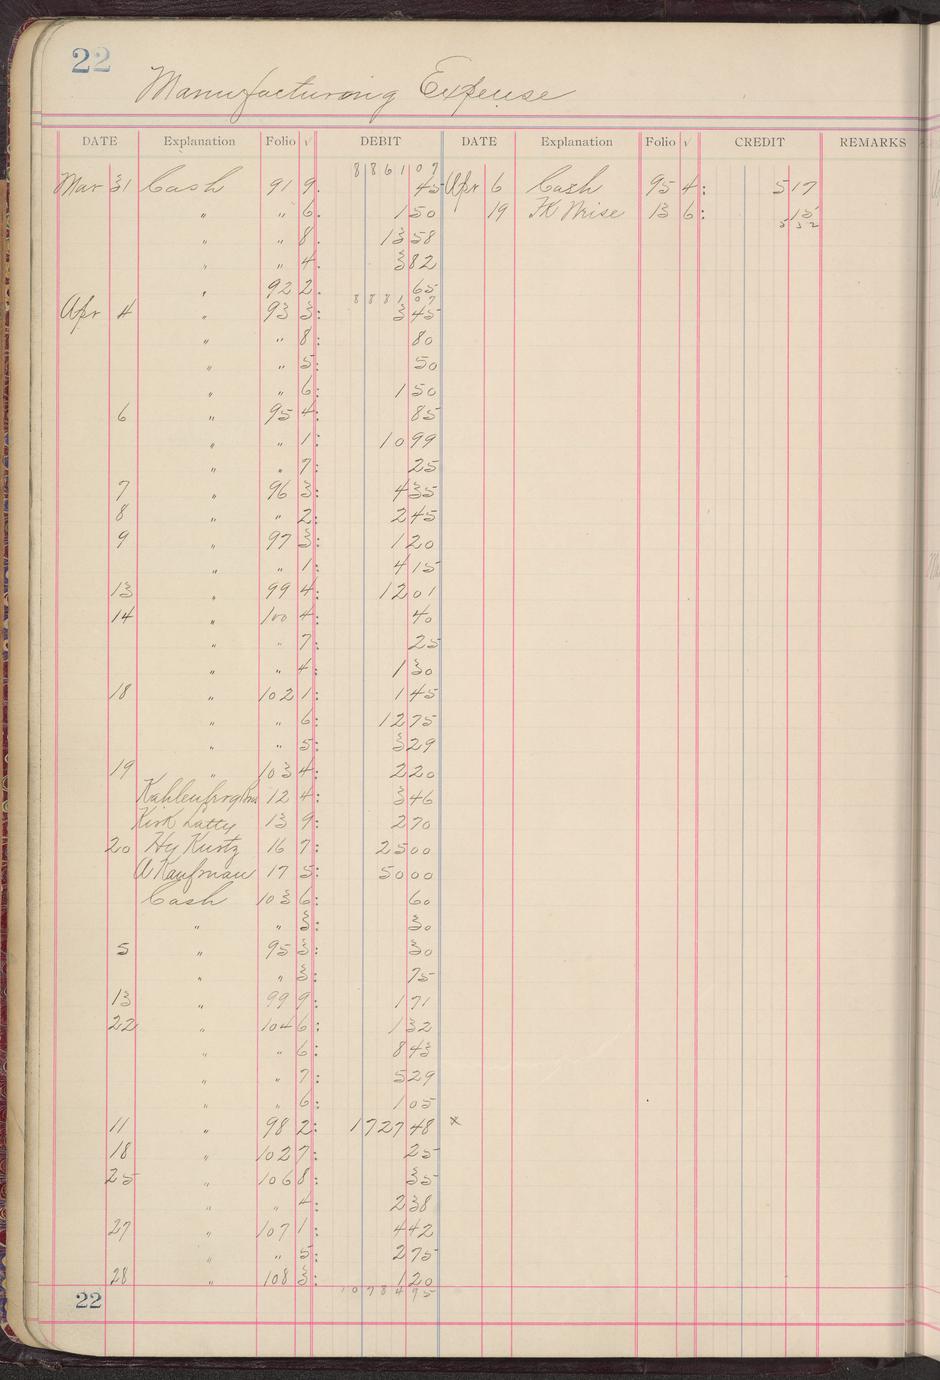 22
Manufacturing Expense
DATE Explanation Folio √ DEBIT DATE Explanation Folio √ CREDIT REMARKS
8861 07
Mar 31 Cash 91 9. 45 Apr 6 Cash 95 4: 5 17
" " 6. 1 50 19 13 6: 15
" " 8. 13 58 5 32
" " 4. 3 82
" 92 2. 65
8881 07
Apr 4 " 93 3: 3 45
" " 8: 80
" " 5: 50
" " 6: 1 50
6 " 95 4: 85
" " 1: 10 99
" " 7: 25
7 " 96 3: 4 35
8 " " 2: 2 45
9 " 97 3: 1 20
" " 1: 4 15
13 " 99 4: 12 01
14 " 100 4: 40
" " 7: 25
" " 4: 1 30
18 " 102 1: 1 45
" " 6: 12 75
" " 5: 3 29
19 " 103 4: 2 20
12 4: 3 46
Kirk Latty 13 9: 2 70
20 Hy Kurtz 16 7: 25 00
A Kaufman 17 5: 50 00
Cash 103 6: 60
" " 3: 30
5 " 95 3: 30
" " 3: 75
13 " 99 9: 1 71
22 " 104 6: 1 32
" " 6: 8 43
" " 7: 5 29
" " 6: 1 05
11 " 98 2: 1727 48 x
18 " 102 7: 25
25 " 106 8: 35
" " 4: 2 38
27 " 107 1: 4 42
" " 5: 2 75
28 " 108 3: 1 20
10784 95
22